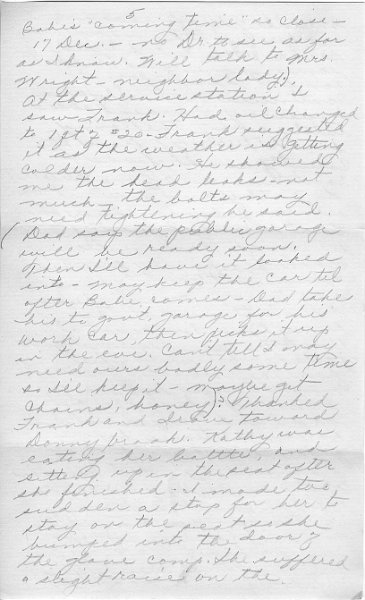 5
Babe's "coming time" so close -
17 Dec. - no Dr. to see as far
as I know. Will talk to Mrs.
Wright - neighbor lady).
At the service station I
saw Frank. Had oil changed
to 1 qt of #20 - Frank suggest'd
it as the weather is getting
colder now. He showed
me the head leaks - not
much - the bolts may
need tightening he said.
(Dad says the public garage
will be ready soon.
Then I'll have it looked
into - may keep the car til
after Babe comes - Dad take
his to govt. garage for his
work car, then picks it up
in the eve. Can't tell I may
need ours badly some time
so I'll keep it - maybe get
chains, honey)? Thanked
Frank and drove toward
Donny brook. Kathy was
eating her bottle, and
sitting up in the seat after
she finished - I made too
sudden a stop for her to
stay on the seat so she
bumped into the door of
the glove comp. She suffered
a slight raise on the